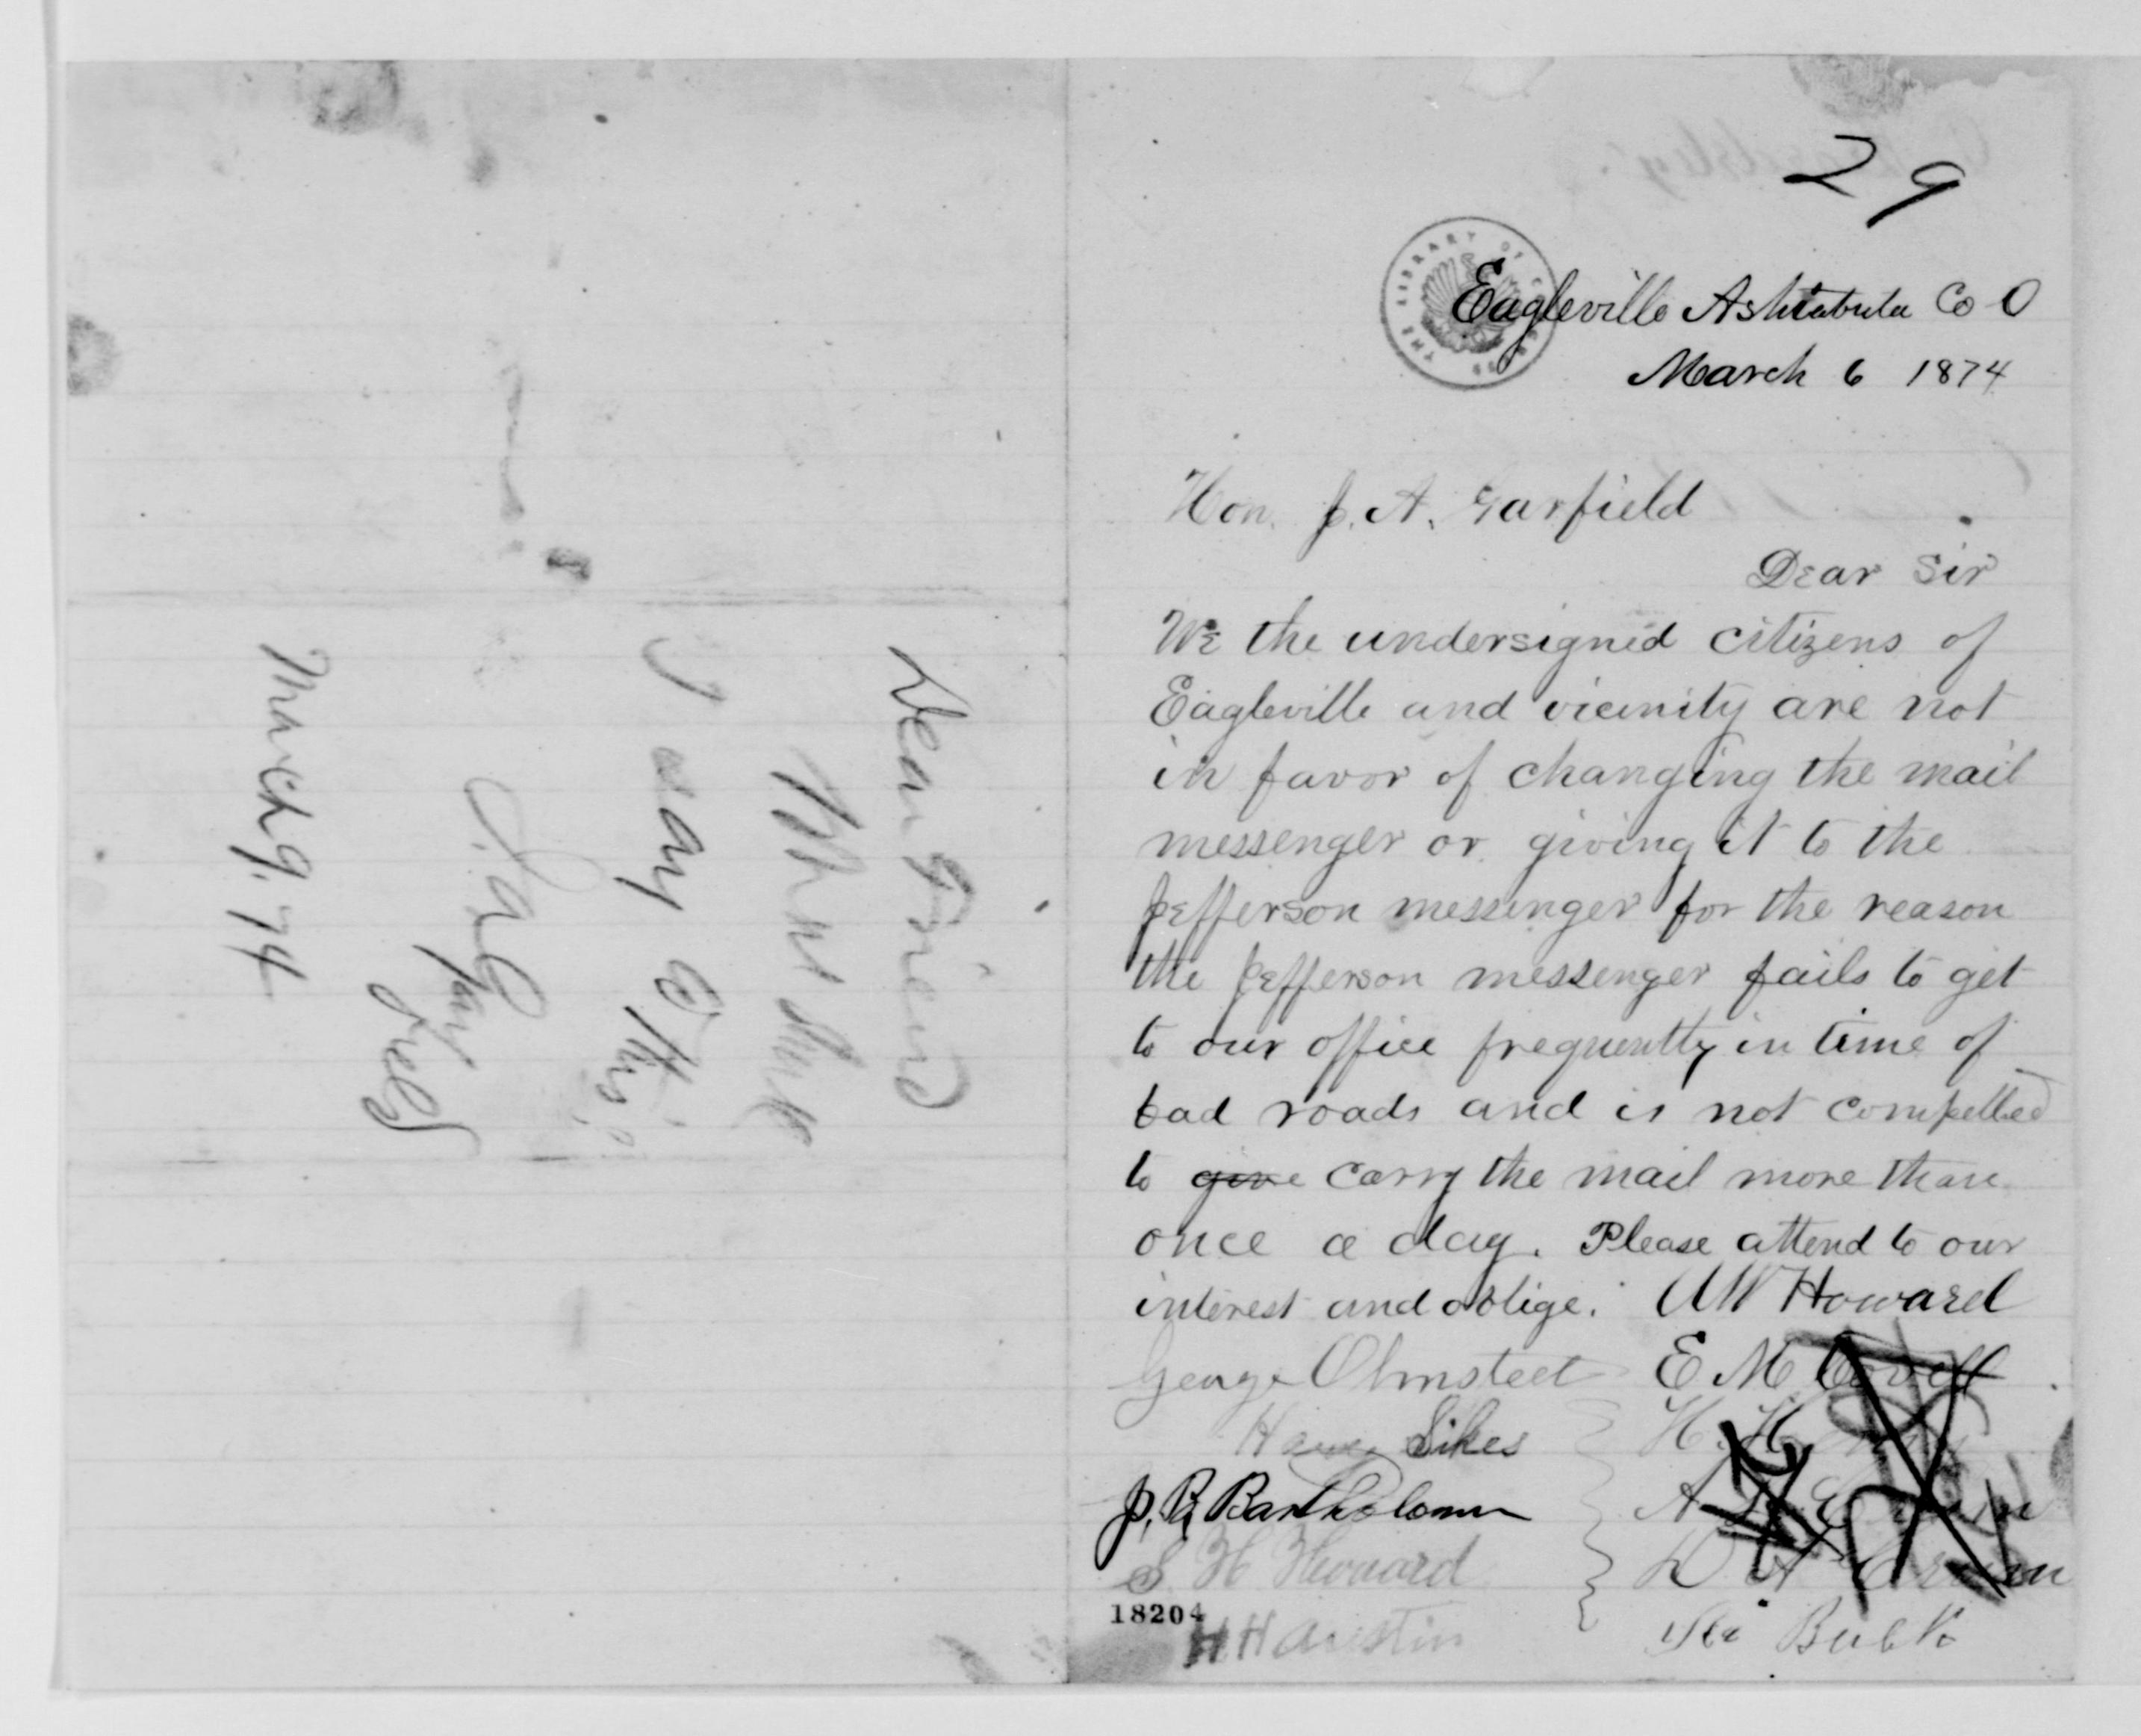 29
Eagleville Ashtabula Co O
March 6 1874
Hon. J. A. Garfield
Dear Sir
We the undersigned citizens of
Eagleville and vicinity are not
in favor of changing the mail
messenger or giving it to the
Jefferson messenger for the reason
the Jefferson messenger fails to get
to our office frequently in time of
bad roads and is not compelled
to give carry the mail more than
once a day. Please attend to our
interest and oblige. A W Howard
George Olmsted E M Covell
Sikes H. H.
J. R. Bartholomew A
S. H. Howard D
18204
H H Austin
THE LIBRARY OF CONGRESS
Dear Friend
I say to this
J. A. Gar
field
March 9, 74